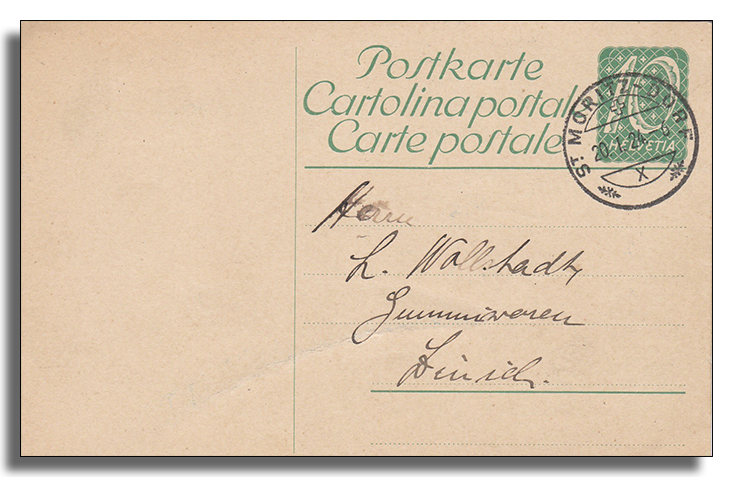 Postkarte
Cartolina postale
Carte postale
10
HELVETIA
ST MORITZ-DORF
20.1.24. 6
X
Herrn
L. Wollstadt,
Gummiwaren
Zürich.